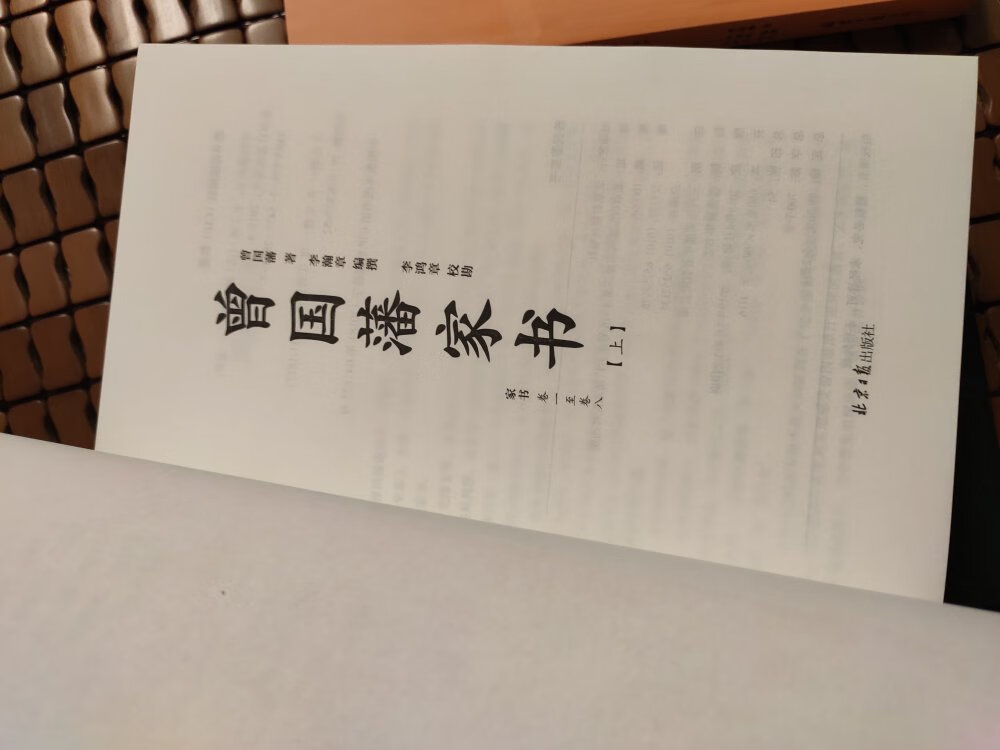 曾国藩 著 李瀚章 编撰 李鸿章 校勘
曾国藩家书
【上】
家书 卷一至卷八
北京日报出版社